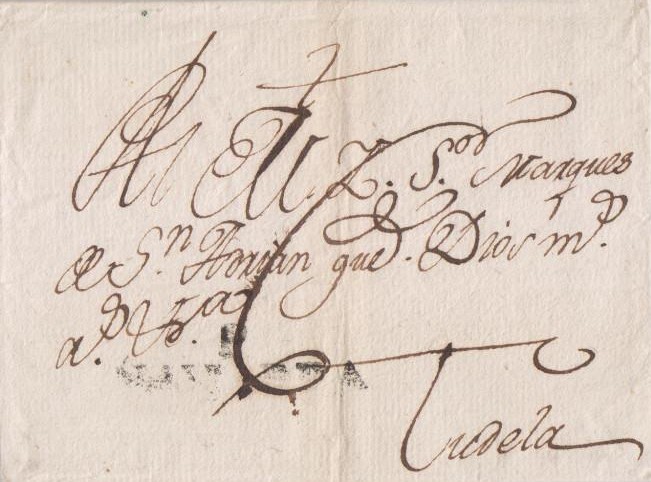 Al M. Y. S.or Marques
de S.n Adrian gue. Dios m.s
a.s
Tudela